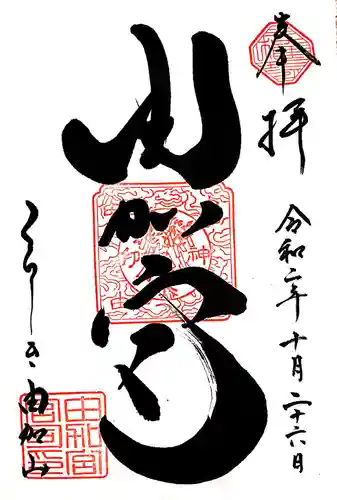 奉拝
令和二年十月二十六日
由加宮
くらしき由加山